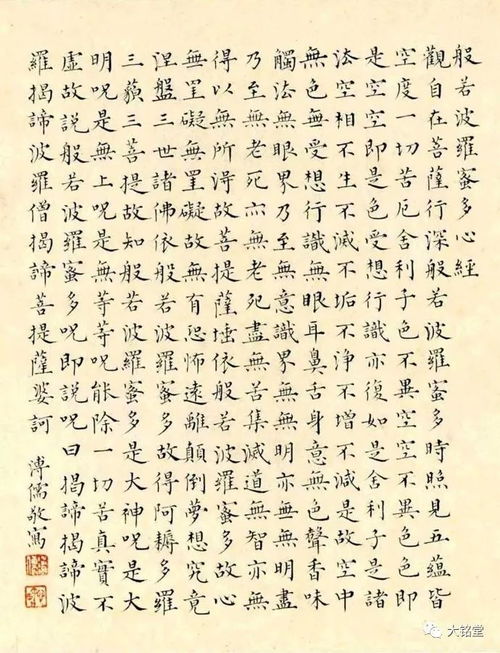 般若波羅蜜多心經
觀自在菩薩行深般若波羅蜜多時照見五蘊皆
空度一切苦厄舍利子色不異空空不異色色即
是空空即是色受想行識亦復如是舍利子是諸
法空相不生不滅不垢不淨不增不減是故空中
無色無受想行識無眼耳鼻舌身意無色聲香味
觸法無眼界乃至無意識界無無明亦無無明盡
乃至無老死亦無老死盡無苦集滅道無智亦無
得以無所得故菩提薩埵依般若波羅蜜多故心
無罣礙無罣礙故無有恐怖遠離顛倒夢想究竟
涅盤三世諸佛依般若波羅蜜多故得阿耨多羅
三藐三菩提故知般若波羅蜜多是大神呪是大
明呪是無上呪是無等等呪能除一切苦真實不
虛故說般若波羅蜜多呪即說呪曰揭諦揭諦波
羅揭諦波羅僧揭諦菩提薩婆訶
溥儒敬寫
大铭堂